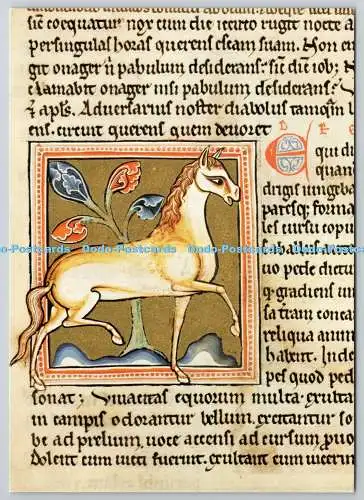 sic coequatur nox cum die rugit nocte a
per singulas horas querens escam suam. Non en
git onager in pabulum desiderans: sic die iob;
clamabit onager nisi pabulum desiderans: 
& apls. Aduersarius noster diabolus tamqm
ens. circuit querens quem deuoret
D E
E qui di
quan
dirigis
paresq; forma
les cursu copu
uo pede dictu
q gradiens
sa tram
reliqua anim
habent. Inde
pes quod ped
sonat; Viuacitas equorum multa. exultan
in campis odorantur bellum. excitantur so
be ad prelium, uoce accensi ad cursum
Dolent cum uicti fuerint. exultant cum uicer
Dodo-Postcards Dodo-Postcards Dodo-Postcards Dodo-Postcards